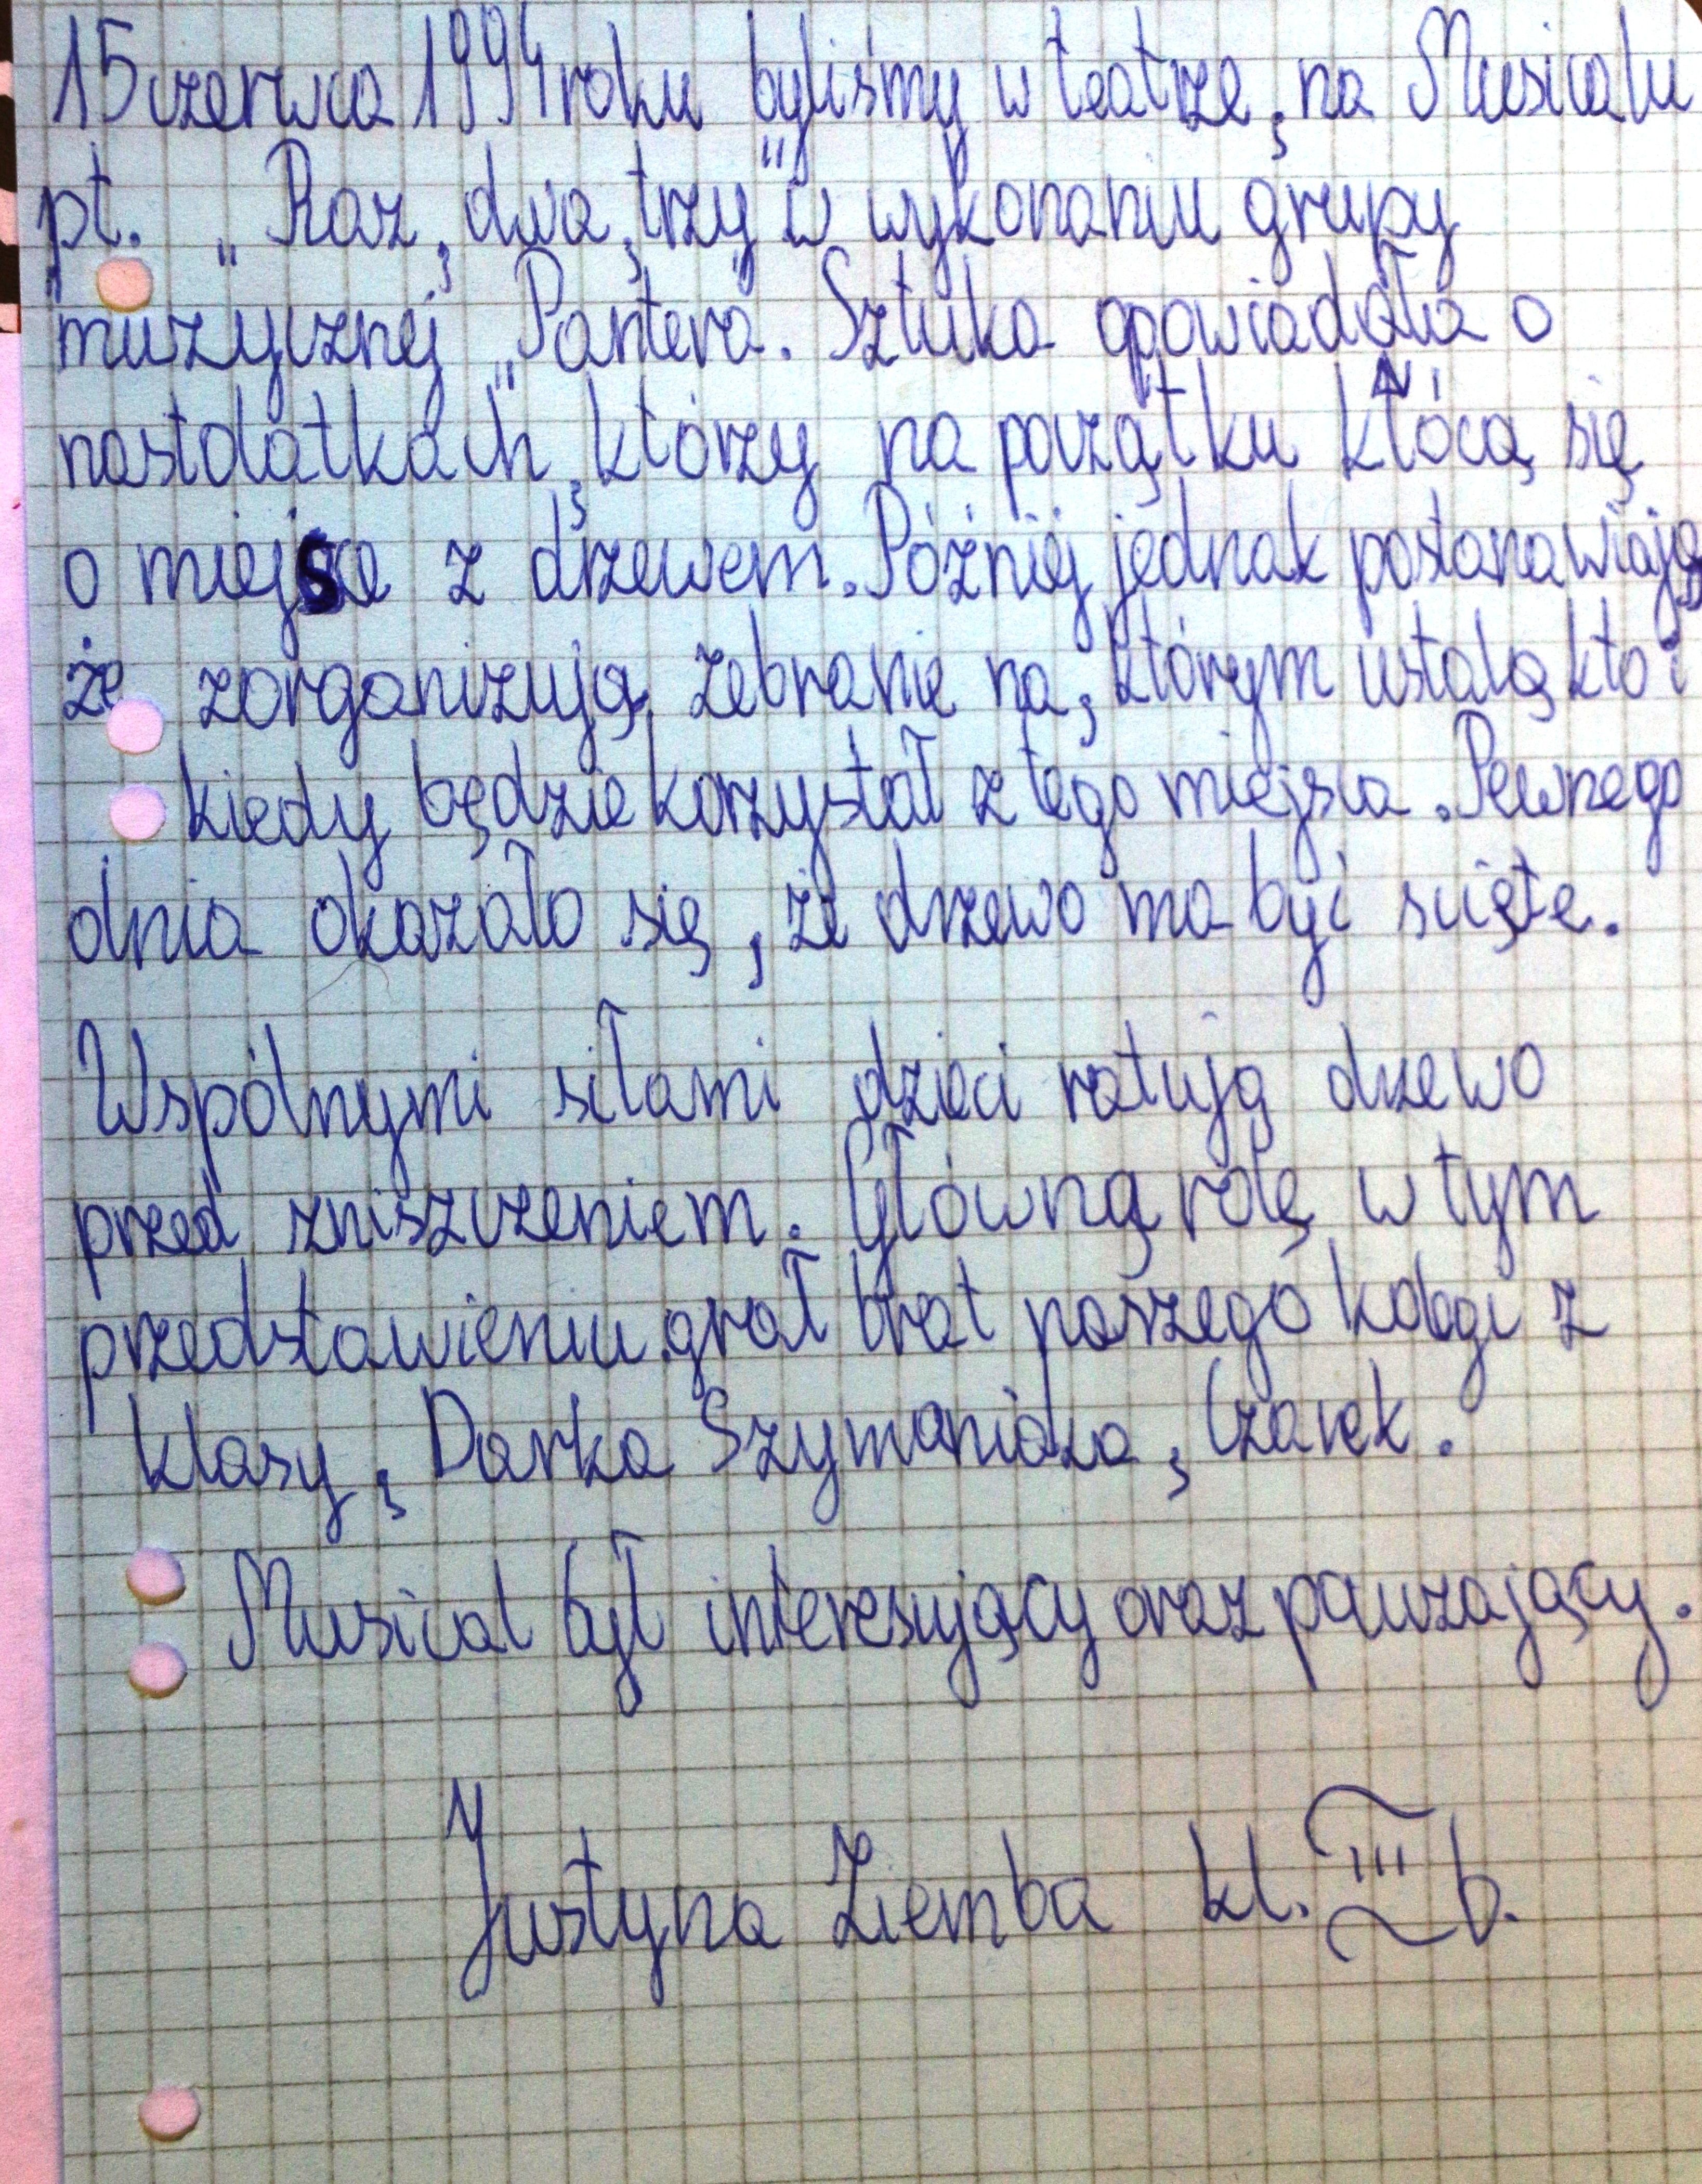 15 czerwca 1994 roku byliśmy w teatrze, na Musicalu
pt. „Raz, dwa, trzy" w wykonaniu grupy
muzycznej „Pantera". Sztuka opowiadała o
nastolatkach, którzy na początku kłócą się
o miejsce z drzewem. Później jednak postanawiają,
że zorganizują zebranie na, którym ustalą kto i
kiedy będzie korzystał z tego miejsca. Pewnego
dnia okazało się, że drzewo ma być ścięte.
Wspólnymi siłami dzieci ratują drzewo
przed zniszczeniem. Główną rolę w tym
przedstawieniu grał brat naszego kolegi z
klasy, Darka Szymaniaka, Czarek.
Musical był interesujący oraz pouczający.
Justyna Ziemba kl. III b.